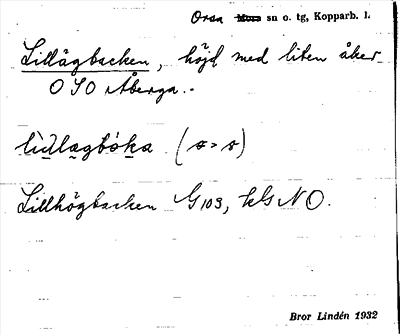 Orsa Mora sn o. tg, Kopparb. l.
Lillågbacken, höjd med liten åker
O SO Åberga.
Lillhögbacken G 103, kls N O.
Bror Lindén 1932